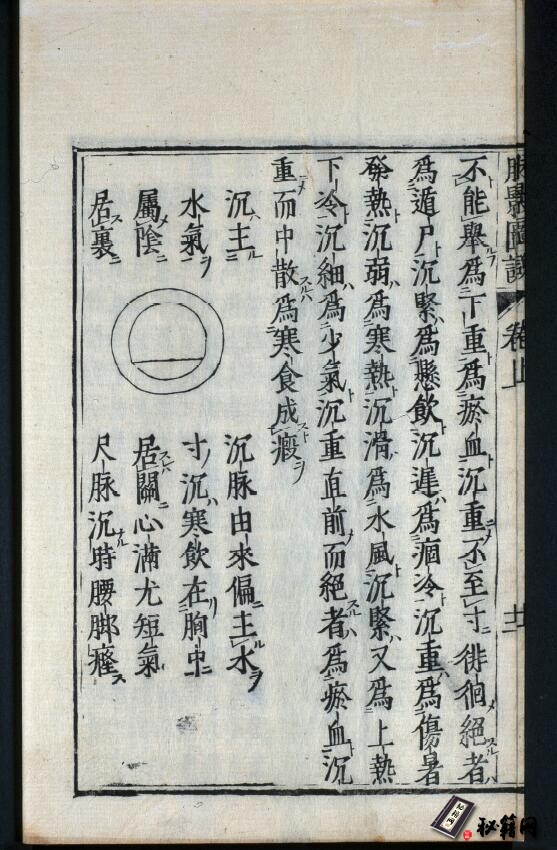 脉影圖說 卷上 廿二
不能舉爲下重爲瘀血沉重不至寸徘徊絕者
爲遁尸沉緊爲懸飲沉遲爲痼冷沉重爲傷暑
發熱沉弱爲寒熱沉滑爲水風沉緊又爲上熱
下冷沉細爲少氣沉重直前而絕者爲瘀血沉
重而中散爲寒食成瘕
沉主
水氣
屬陰
居裏
沉脉由來偏主水
寸沉寒飲在胸中
居關心滿尤短氣
尺脉沉時腰脚瘇
秘籍网